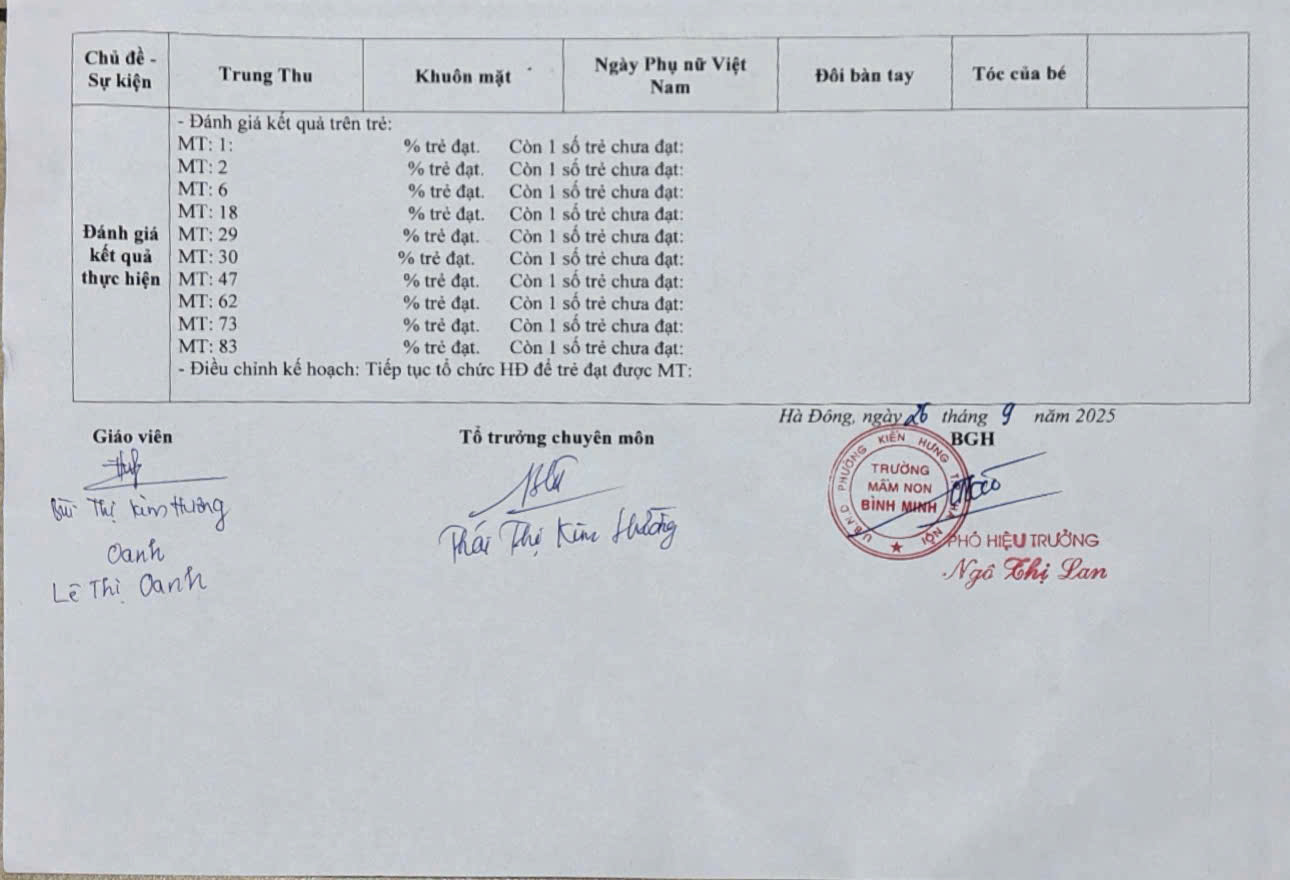 Chủ đề - Sự kiện
Trung Thu
Khuôn mặt
Ngày Phụ nữ Việt Nam
Đôi bàn tay
Tóc của bé
Đánh giá kết quả thực hiện
- Đánh giá kết quả trên trẻ:
MT: 1: % trẻ đạt. Còn 1 số trẻ chưa đạt:
MT: 2 % trẻ đạt. Còn 1 số trẻ chưa đạt:
MT: 6 % trẻ đạt. Còn 1 số trẻ chưa đạt:
MT: 18 % trẻ đạt. Còn 1 số trẻ chưa đạt:
MT: 29 % trẻ đạt. Còn 1 số trẻ chưa đạt:
MT: 30 % trẻ đạt. Còn 1 số trẻ chưa đạt:
MT: 47 % trẻ đạt. Còn 1 số trẻ chưa đạt:
MT: 62 % trẻ đạt. Còn 1 số trẻ chưa đạt:
MT: 73 % trẻ đạt. Còn 1 số trẻ chưa đạt:
MT: 83 % trẻ đạt. Còn 1 số trẻ chưa đạt:
- Điều chỉnh kế hoạch: Tiếp tục tổ chức HĐ để trẻ đạt được MT:
Hà Đông, ngày 26 tháng 9 năm 2025
Giáo viên
Bùi Thị Kim Hương
Oanh
Lê Thị Oanh
Tổ trưởng chuyên môn
Thái Thị Kim
BGH
U.B.N.D PHƯỜNG KIẾN HƯNG T.P HÀ NỘI
TRƯỜNG
MẦM NON
BÌNH MINH
PHÓ HIỆU TRƯỞNG
Ngô Thị Lan